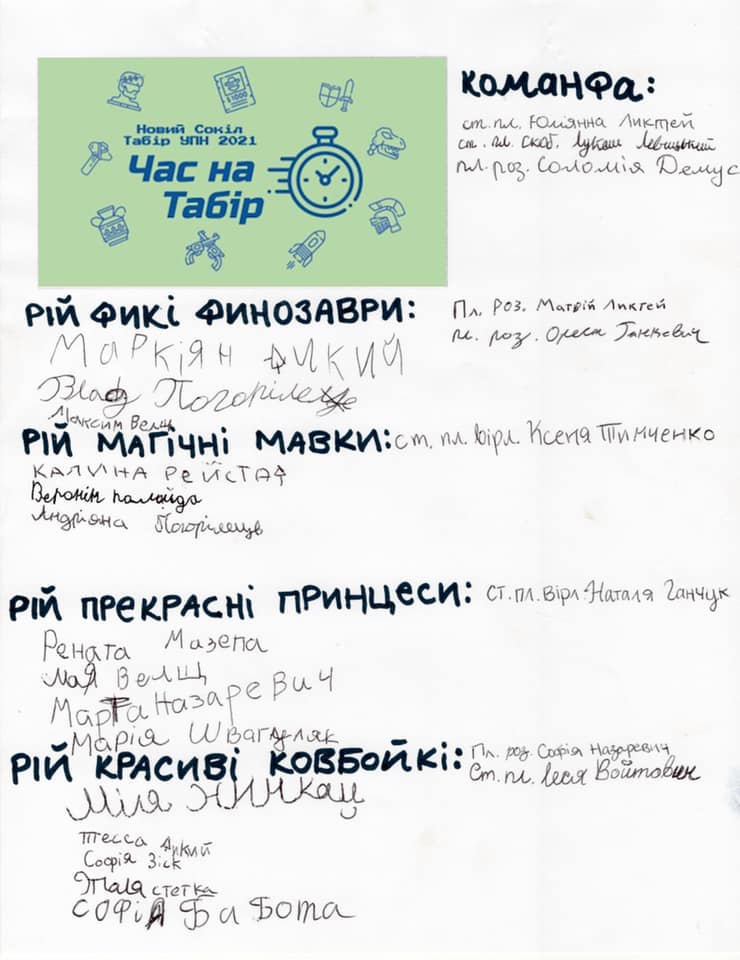 Новий Сокіл
Табір УПН 2021
Час на
Табір
$1000
КОМАНДА:
ст. пл. Юліянна Ликтей
ст. пл. скоб. Лукаш Левицький
пл. роз. Соломія Демус
РІЙ ДИКІ ДИНОЗАВРИ:
Пл. роз. Матвій Ликтей
пл. роз. Орест Ганкевич
Маркіян Дикий
Влад Погорілець
Максим Велщ
РІЙ МАГІЧНІ МАВКИ:
ст. пл. вірл. Ксеня Тимченко
КАЛИНА РЕЙСТАД
Веронік паляйда
Андріяна Погорілець
РІЙ ПРЕКРАСНІ ПРИНЦЕСИ:
ст. пл. вірл. Наталя Ганчук
Рената Мазепа
мая Велщ
Марта Назаревич
Марія Швагуляк
РІЙ КРАСИВІ КОВБОЙКІ:
Пл. роз. Софія Назаревич
Ст. пл. Леся Войтович
Міля
Тесса Дикий
Софія Зіск
Таля стетка
Софія Бабота